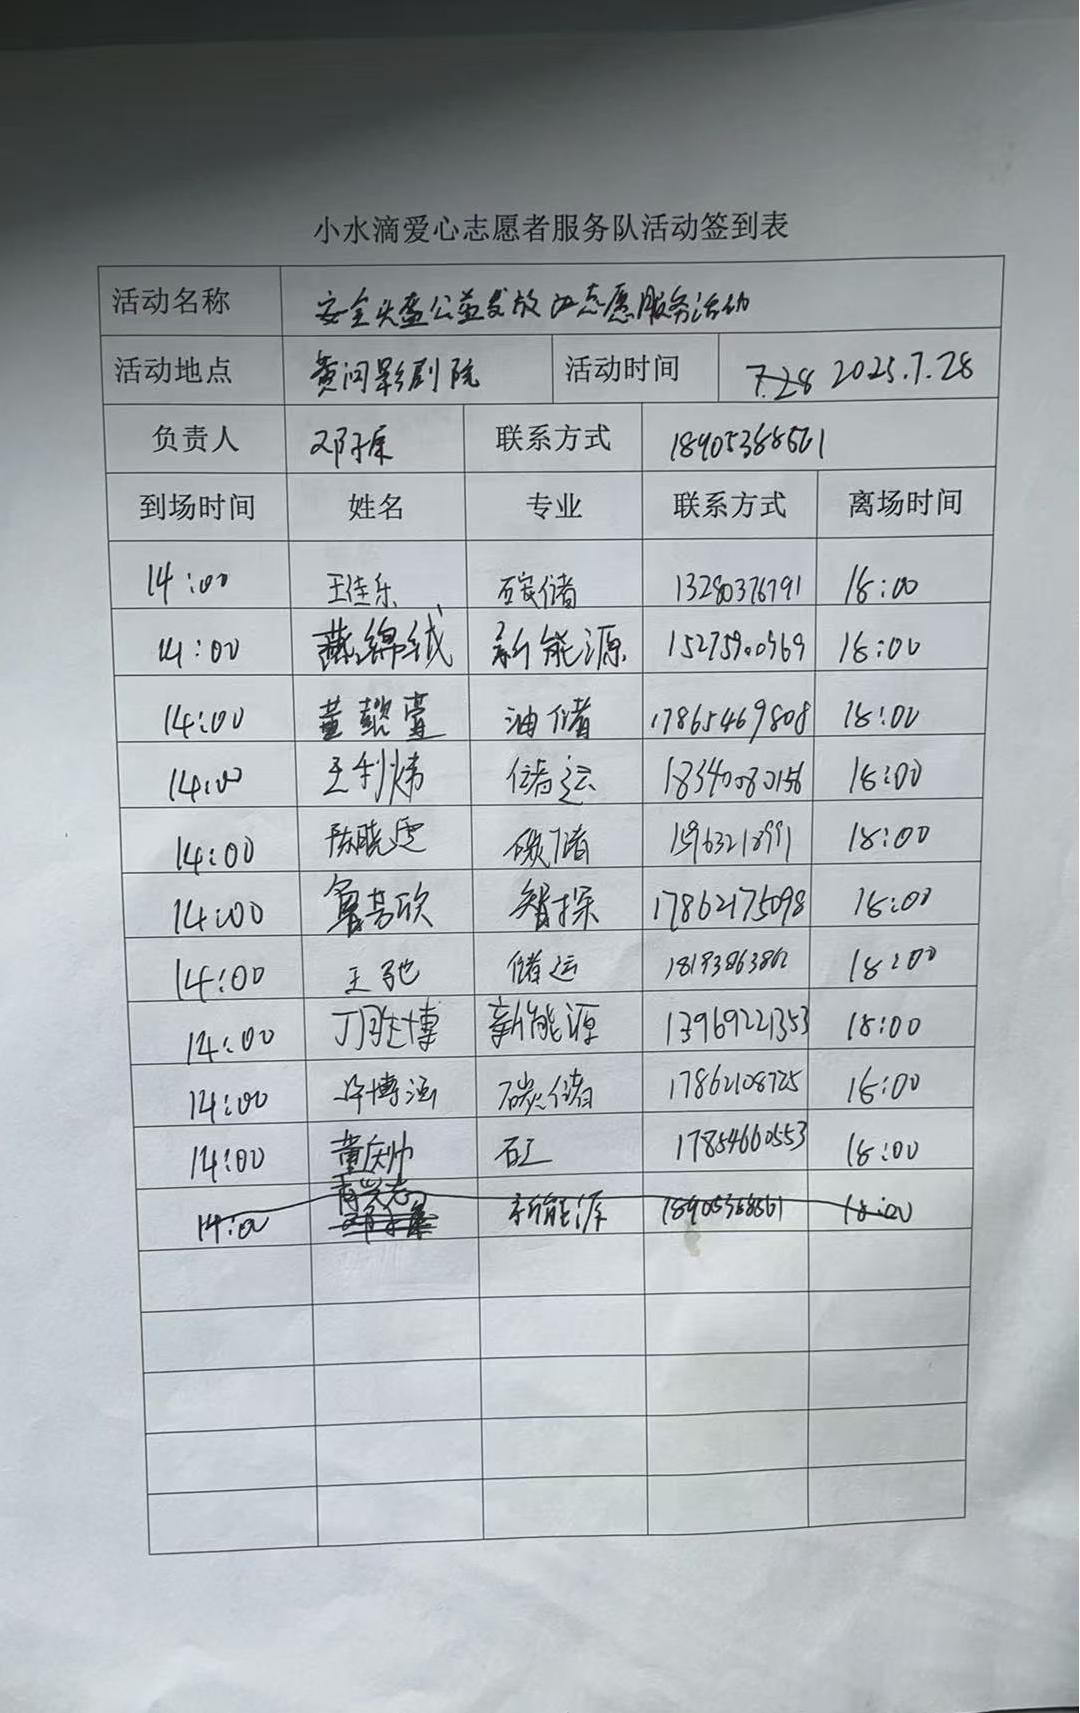 小水滴爱心志愿者服务队活动签到表
活动名称 安全头盔公益发放志愿服务活动
活动地点 黄河影剧院 活动时间 7.28 2025.7.28
负责人 联系方式 18905368561
到场时间 姓名 专业 联系方式 离场时间
14:00 王佳乐 碳储 13280376791 18:00
14:00 燕绵绒 新能源 18:00
14:00 董懿萱 油储 17865469808 18:00
14:00 王利炜 储运 18340080156 18:00
14:00 陈晓雯 碳储 18:00
14:00 智探 17862175098 18:00
14:00 王弛 储运 18193863862 18:00
14:00 新能源 13969221353 18:00
14:00 许博涵 碳储 17862108725 18:00
14:00 董庆帅 石工 17854660553 18:00
14:00 新能源 18905368561 18:00